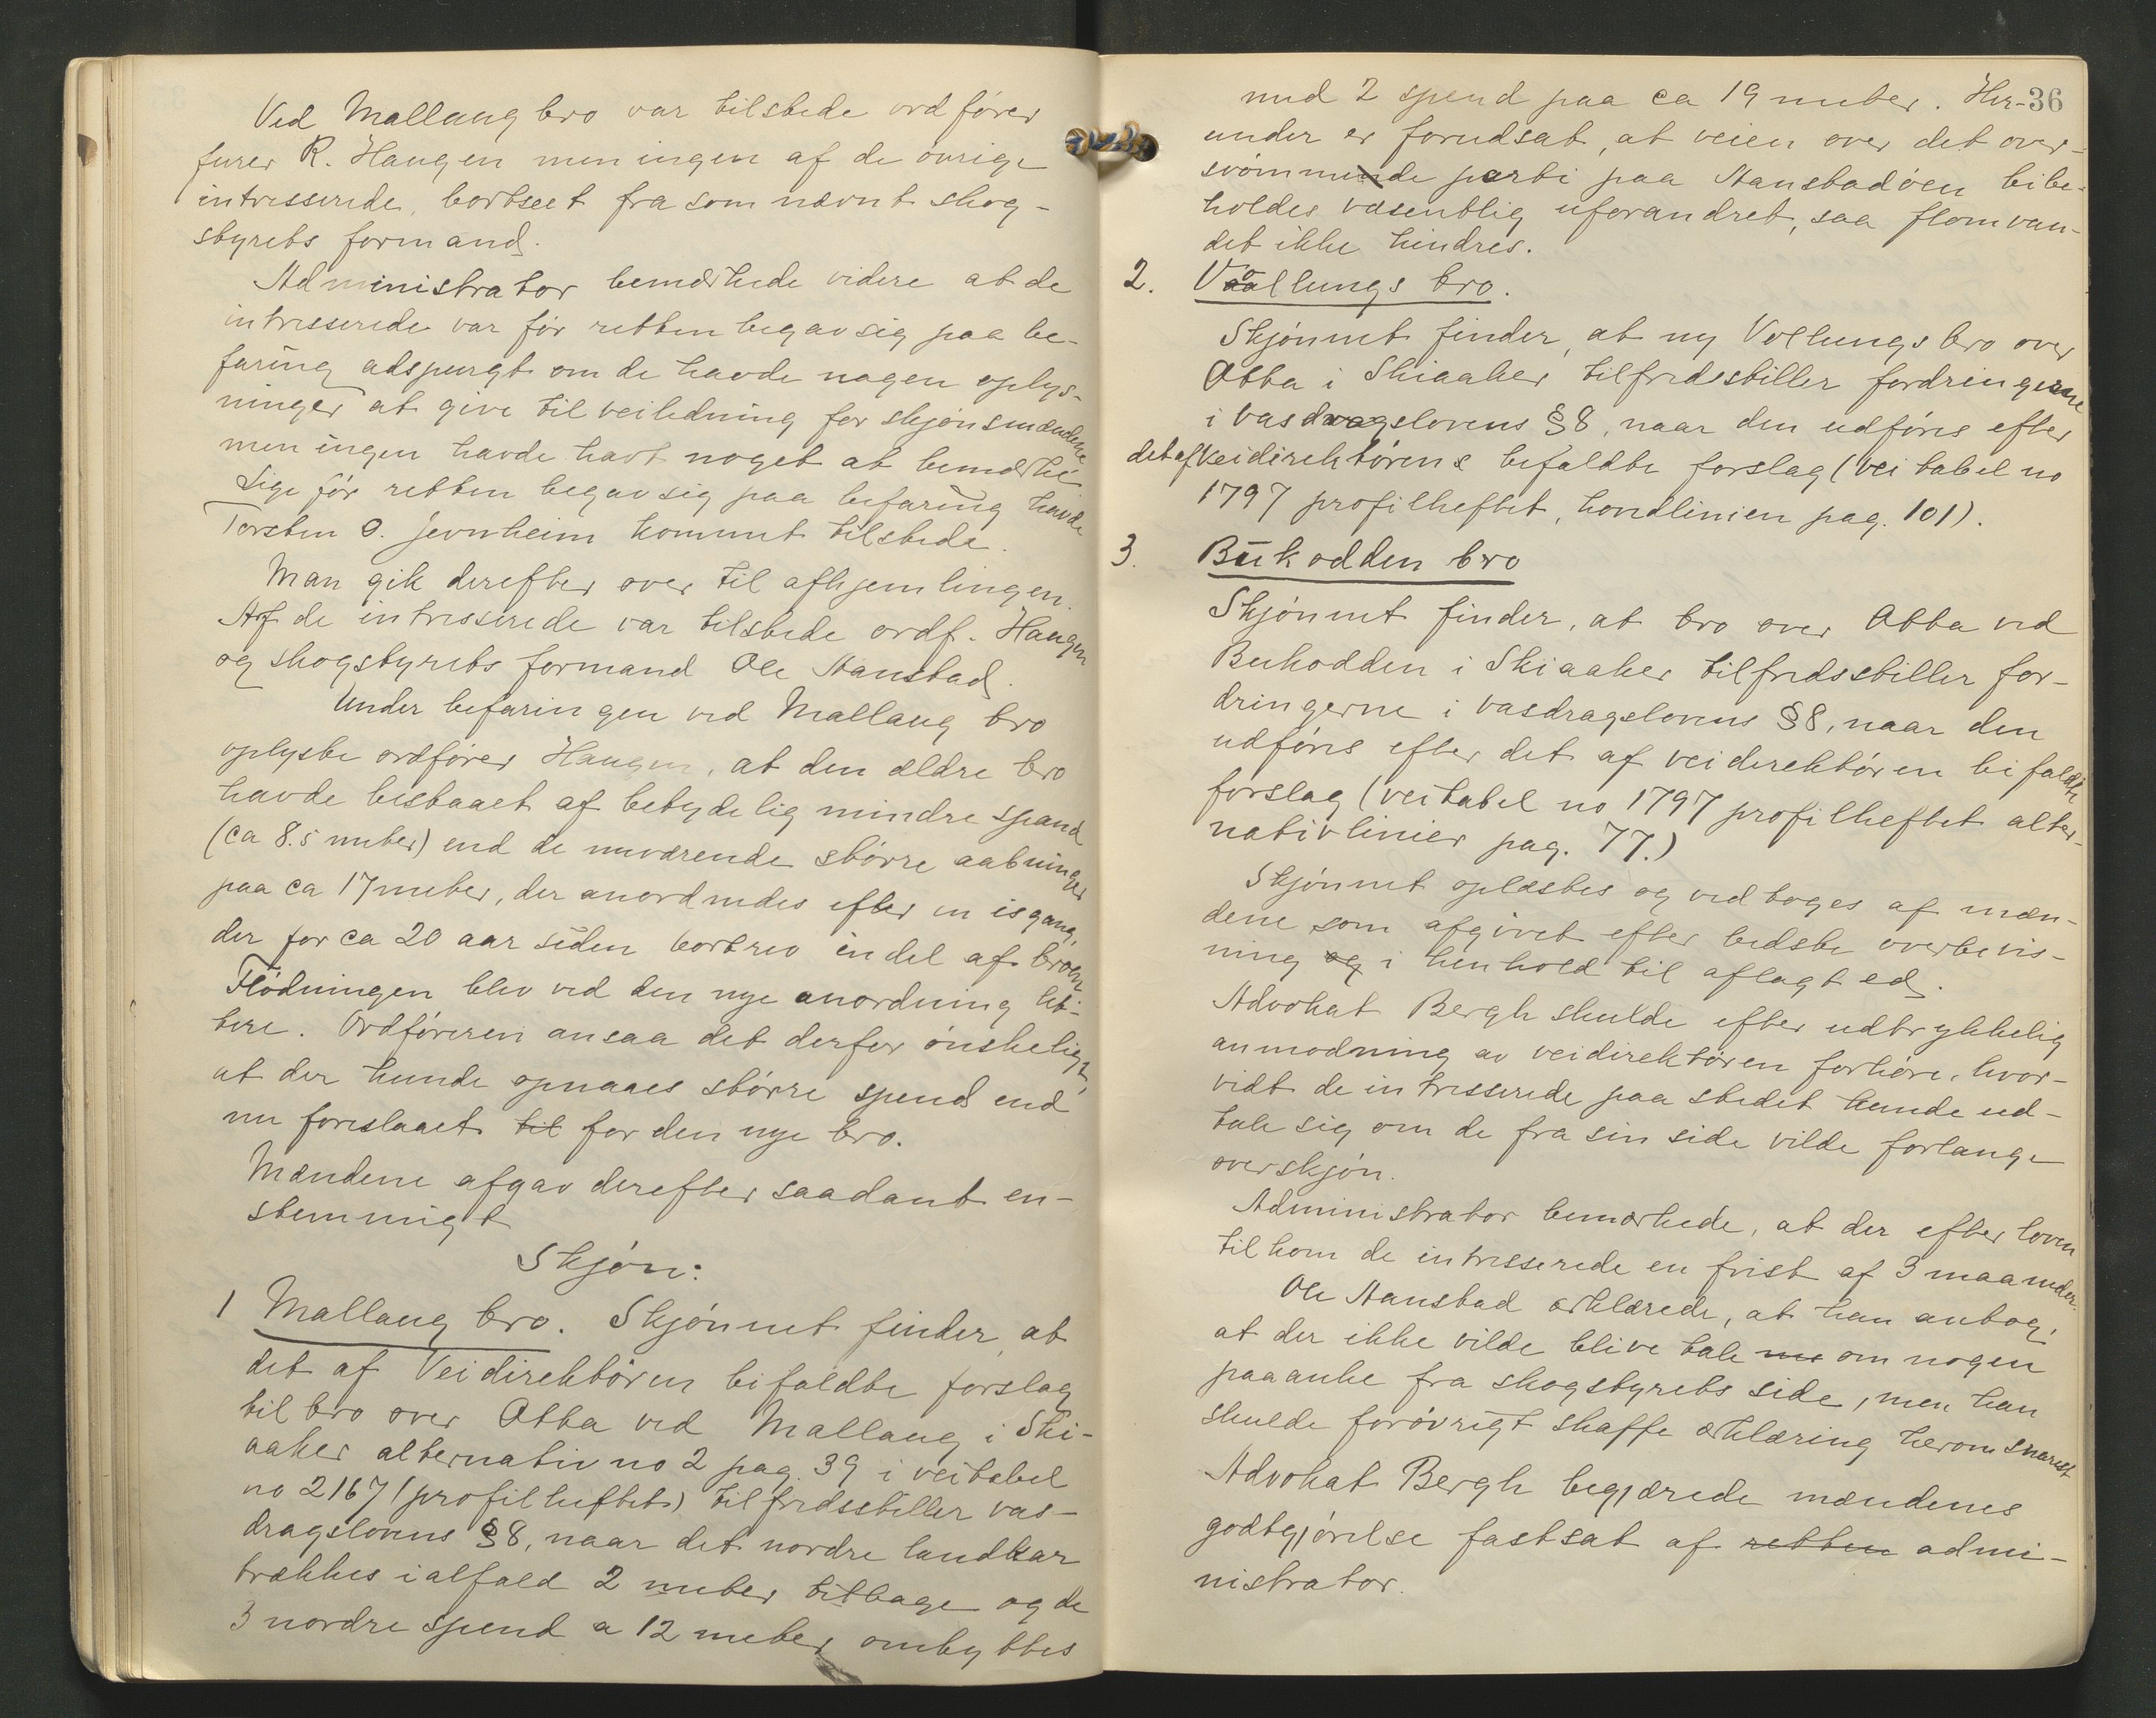 Ved Mallang bro var tilstede ordfører
furer R. Haugen men ingen af de øvrige
intresserede, bortseet fra som nævnt skog-
styrets formand.
Administrator bemærkede videre at de
intresserede var før retten begav sig paa be-
faring adspurgt om de havde nogen oplys-
ninger at give til veiledning for skjønsmændene
men ingen havde havt noget at bemærke
Lige før retten begav sig paa befaring havde
Torsten O. Jevnheim kommet tilstede.
Man gik derefter over til afhjemlingen.
Af de intresserede var tilstede ordf. Haugen
og skogstyrets formand Ole Stanstad.
Under befaringen ved Mallang bro
oplyste ordfører Haugen, at den ældre bro
havde bestaaet af betydelig mindre spand
(ca 8.5 meter) end de nuværende større aabninger
paa ca 17 meter, der anordnedes efter en isgang,
der for ca 20 aar siden bortrev endel af broen
Flødningen blev ved den nye anordning let-
tere. Ordføreren ansaa det derfor ønskeligt,
at der kunde opnaaes større spend end
nu foreslaaet til for den nye bro.
Mændene afgav derefter saadant en-
stemmigt
Skjøn:
1 Mallang bro. Skjønnet finder, at
det af Veidirektøren bifaldte forslag
til bro over Otta ved Mallang i Ski-
aaker alternativ no 2 pag. 39 i veitabel
no 2167 (profilheftet) tilfredsstiller vas-
dragslovens §8, naar det nordre landkar
trækkes ialfald 2 meter tilbage og de
3 nordre spend a 12 meter ombyttes
med 2 spend paa ca 19 meter. Her- 36
under er forudsat, at veien over det over-
svømmende parti paa Stanstadøen bibe-
holdes væsentlig uforandret, saa flomvan-
det ikke hindres.
2. Vaallungs bro.
Skjønnet finder, at ny Vollungs bro over
Otta i Skiaaker tilfredsstiller fordringerne
i vasdragslovens §8, naar den udføres efter
det af Veidirektørens bifaldte forslag (vei tabel no
1797 profilheftet, hovdlinien pag. 101).
3. Bukodden bro
Skjønnet finder, at bro over Otta ved
Bukodden i Skiaaker tilfredsstiller for-
dringerne i vasdragslovens §8, naar den
udføres efter det af veidirektøren bifaldte
forslag (veitabel no 1797 profilheftet alter-
nativlinier pag. 77.)
Skjønnet oplæstes og vedtoges af mæn-
dene som afgivet efter bedste overbevis-
ning og i henhold til aflagt ed.
Advokat Bergh skulde efter udtrykkelig
anmodning av veidirektøren forhøre, hvor-
vidt de intresserede paa stedet kunde ud-
tale sig om de fra sin side vilde forlange
overskjøn.
Administrator bemærkede, at der efter loven
tilkom de intresserede en frist af 3 maaneder.
Ole Stanstad erklærede, at han antog,
at der ikke vilde blive tale me om nogen
paaanke fra skogstyrets side, men han
skulde forøvrigt skaffe erklæring herom snarest
Advokat Bergh begjærede mændenes
godtgjørelse fastsat af retten admi-
nistrator.